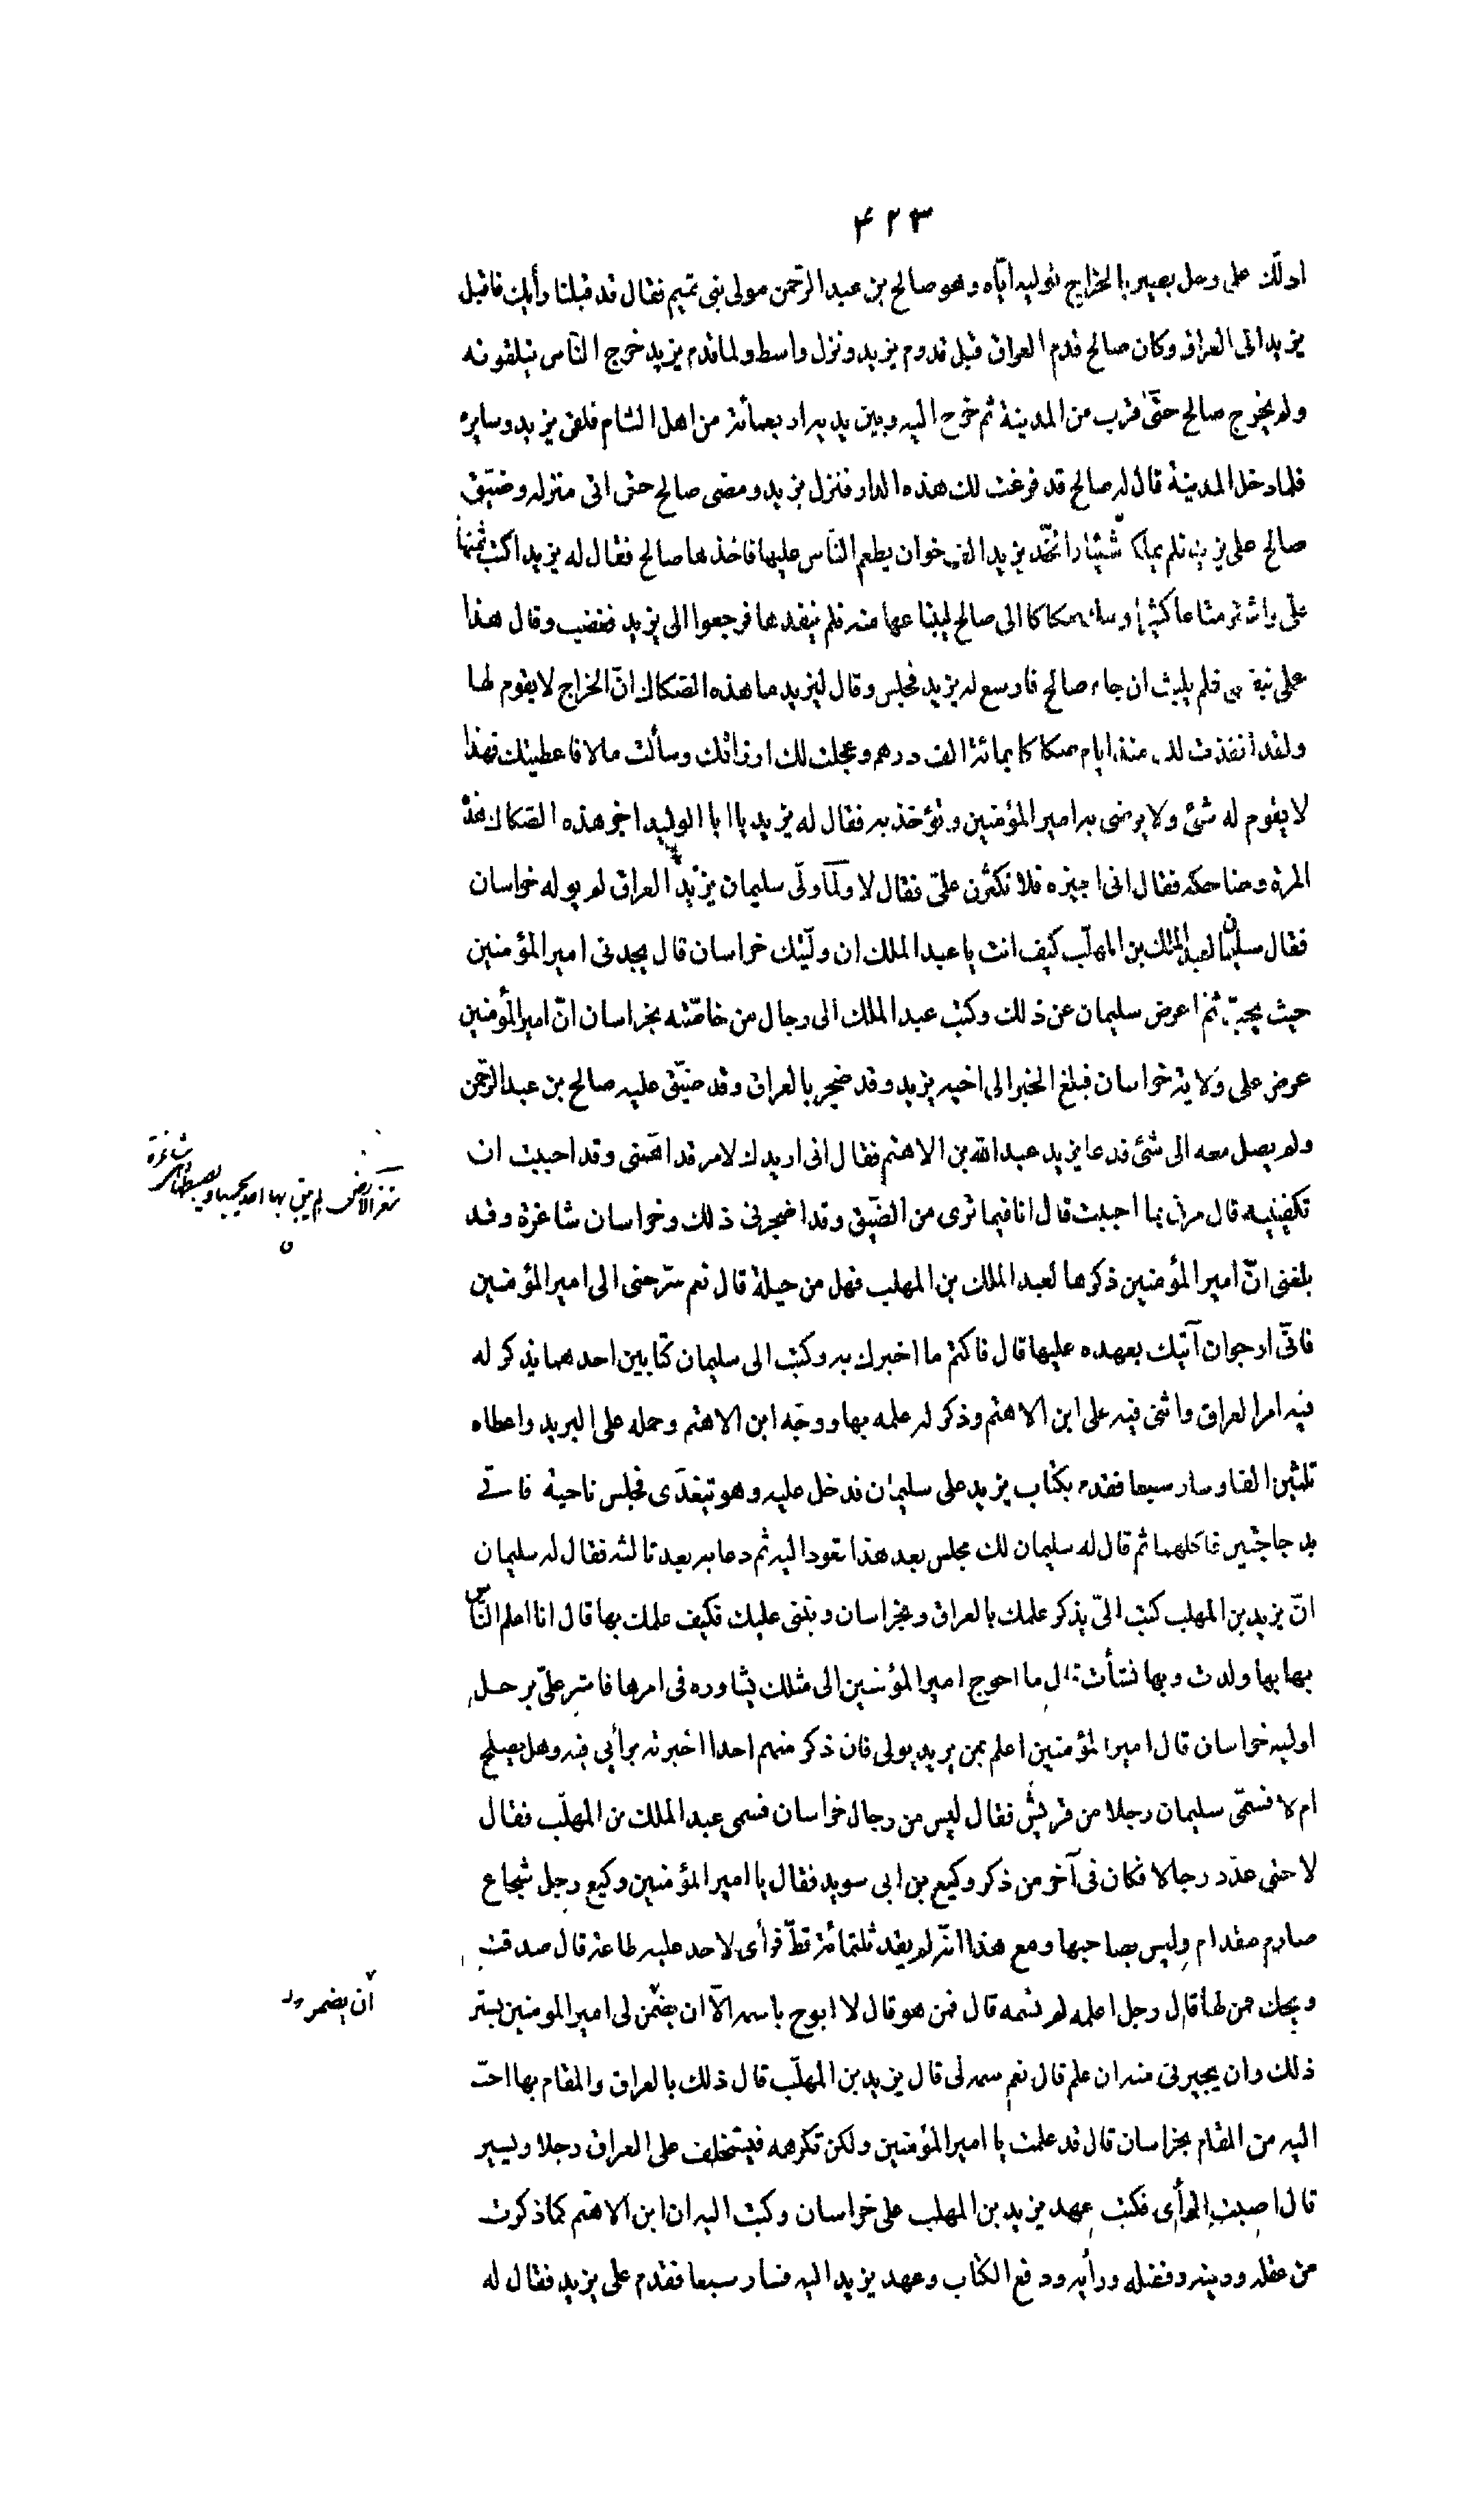 ٤٢٣
ادلّك على رجل بصير بالخراج توليه ايّاه وهو صالح بن عبد الرّحمن مولى بنى تميم فقال قد قبلنا رأيك فاقبل
يزيد الى العراق وكان صالح قدم العراق قبل قدوم يزيد ونزل واسط ولما قدم يزيد خرج النّاس يتلقونه
ولم يخرج صالح حتّى قرب من المدينة ثم خرج اليه وبين يديه اربعمائة من اهل الشام فلقى يزيد وسايره
فلما دخل المدينة قال له صالح قد فرغت لك هذه الدار فنزل يزيد ومضى صالح حتى اتى منزله وضيّق
صالح على يزيد فلم يملّكه شيئا واتّخذ يزيد الف خوان يطعم النّاس عليها فاخذها صالح فقال له يزيد اكتب ثمنها
علىّ واشترى متاعا كثيرا وصكّ صكاكا الى صالح ليبتاعها منه فلم ينفدها فرجعوا الى يزيد فغضب وقال هذا
عملى بنفسى فلم يلبث ان جاء صالح فاوسع له يزيد فجلس وقال ليزيد ما هذه الصّكاك انّ الخراج لا يقوم لها
ولقد انفذت لك منذ ايام صكاكا بمائة الف درهم وعجلت لك ارزاقك وسألت مالا فاعطيتك فهذا
لا يقوم له شئ ولا يرضى به امير المؤمنين وتؤخذ به فقال له يزيد يا ابا الوليد اجز هذه الصّكاك هذه
المرة وضاحكه فقال انى اجيزه فلا تكثرن علىّ فقال لا ولمّا ولّى سليمان يزيد العراق لم يوله خراسان
فقال سليمان لعبد الملك بن المهلّب كيف انت يا عبد الملك ان ولّيتك خراسان قال يجدنى امير المؤمنين
حيث يحبّ ثم اعرض سليمان عن ذلك وكتب عبد الملك الى رجال من خاصّته بخراسان انّ امير المؤمنين
عرض على ولاية خراسان فبلغ الخبر الى اخيه يزيد وقد ضجر بالعراق وقد ضيّق عليه صالح بن عبد الرّحمن
ولم يصل معه الى شئ فدعا يزيد عبد الله بن الاهتم فقال انى اريدك لامر قد اهمّنى وقد احببت ان
تكفينيه قال مرنى بما احببت قال انا فيما ترى من الضّيق وقد اضجرنى ذلك وخراسان شاغرة وقد
بلغنى انّ امير المؤمنين ذكرها لعبد الملك بن المهلب فهل من حيلة قال نعم سرّحنى الى امير المؤمنين
فانّى ارجو ان آتيك بعهده عليها قال فاكتم ما اخبرك به وكتب الى سليمان كتابين احدهما يذكر له
فيه امر العراق واثنى فيه على ابن الاهتم وذكر له علمه بها ووجّه ابن الاهتم وحمله على البريد واعطاه
ثلثين الفا وسار سبعا فقدم بكتاب يزيد على سليمان فدخل عليه وهو يتغدّى فجلس ناحية فاتى
بدجاجتين فاكلهما ثم قال له سليمان لك مجلس بعد هذا تعود اليه ثم دعا به بعد ثالثه فقال له سليمان
انّ يزيد بن المهلب كتب الىّ يذكر علمك بالعراق وبخراسان ويثنى عليك فكيف علمك بها قال انا اعلم النّاس
بها بها ولدت وبها نشأت قال ما احوج امير المؤمنين الى مثلك يشاوره فى امرها فاشر علىّ برجل
اوليه خراسان قال امير المؤمنين اعلم بمن يريد يولى فان ذكر منهم احدا اخبرته برأيى فيه وهل يصلح
ام لا فسمّى سليمان رجلا من قريش فقال ليس من رجال خراسان فسمى عبد الملك بن المهلّب فقال
لا حتى عدّد رجالا فكان فى آخر من ذكر وكيع بن ابى سويد فقال يا امير المؤمنين وكيع رجل شجاع
صارم مقدام وليس بصاحبها ومع هذا انّه لم يقد ثلثمائة قطّ فرأى لاحد عليه طاعة قال صدقت
ويحك فمن لها قال رجل اعلمه لم تسمه قال فمن هو قال لا ابوح باسمه الّا ان يضمن لى امير المومنين بستر
ذلك وان يجيرنى منه ان علم قال نعم سمه لى قال يزيد بن المهلّب قال ذلك بالعراق والمقام بها احبّ
اليه من المقام بخراسان قال قد علمت يا امير المؤمنين ولكن تكرهه فيستخلف على العراق رجلا ويسير
قال اصبت الرأى فكتب عهد يزيد بن المهلب على خراسان وكتب اليه ان ابن الاهتم كما ذكرت
من عقله ودينه وفضله ورأيه ودفع الكتاب وعهد يزيد اليه فسار سبعا فقدم على يزيد فقال له
شاغرة
شغر الارض لم يبق بها احد يحميها ويضبطها
ن
ان يضمر